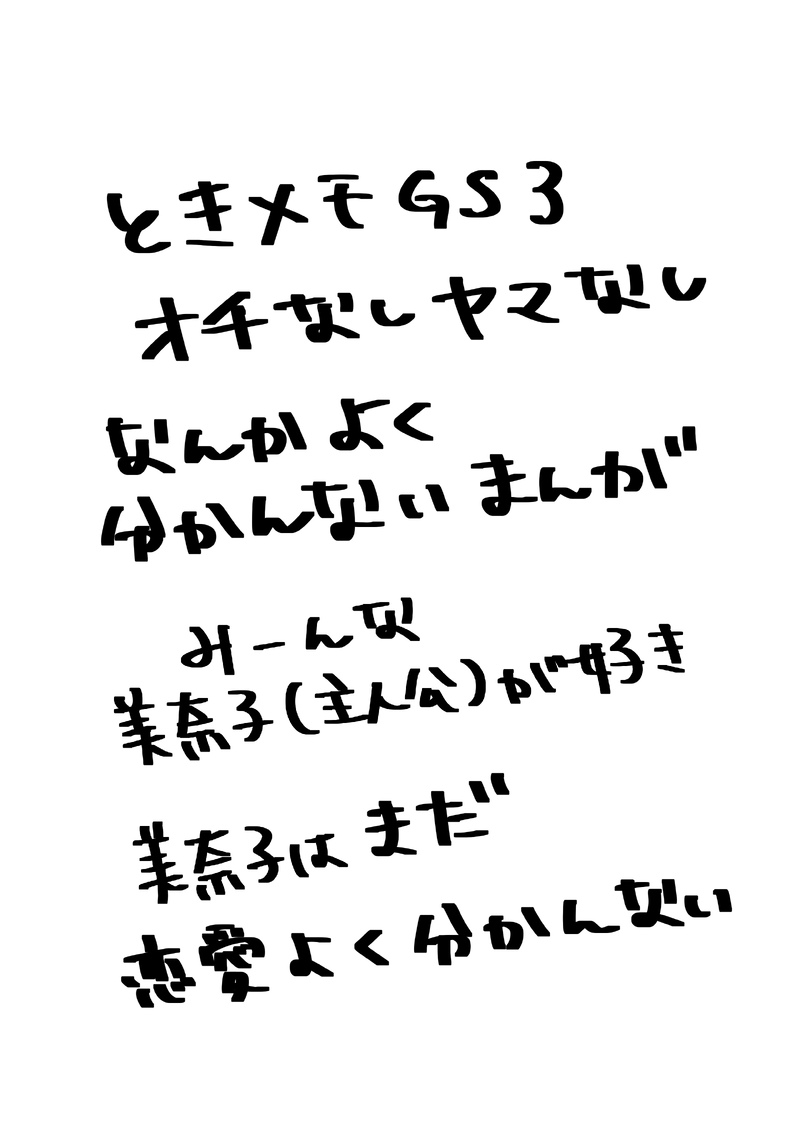 ときメモGS3
オチなしヤマなし
なんかよく
分かんないまんが
みーんな
美奈子(主人公)が好き
美奈子はまだ
恋愛よく分かんない